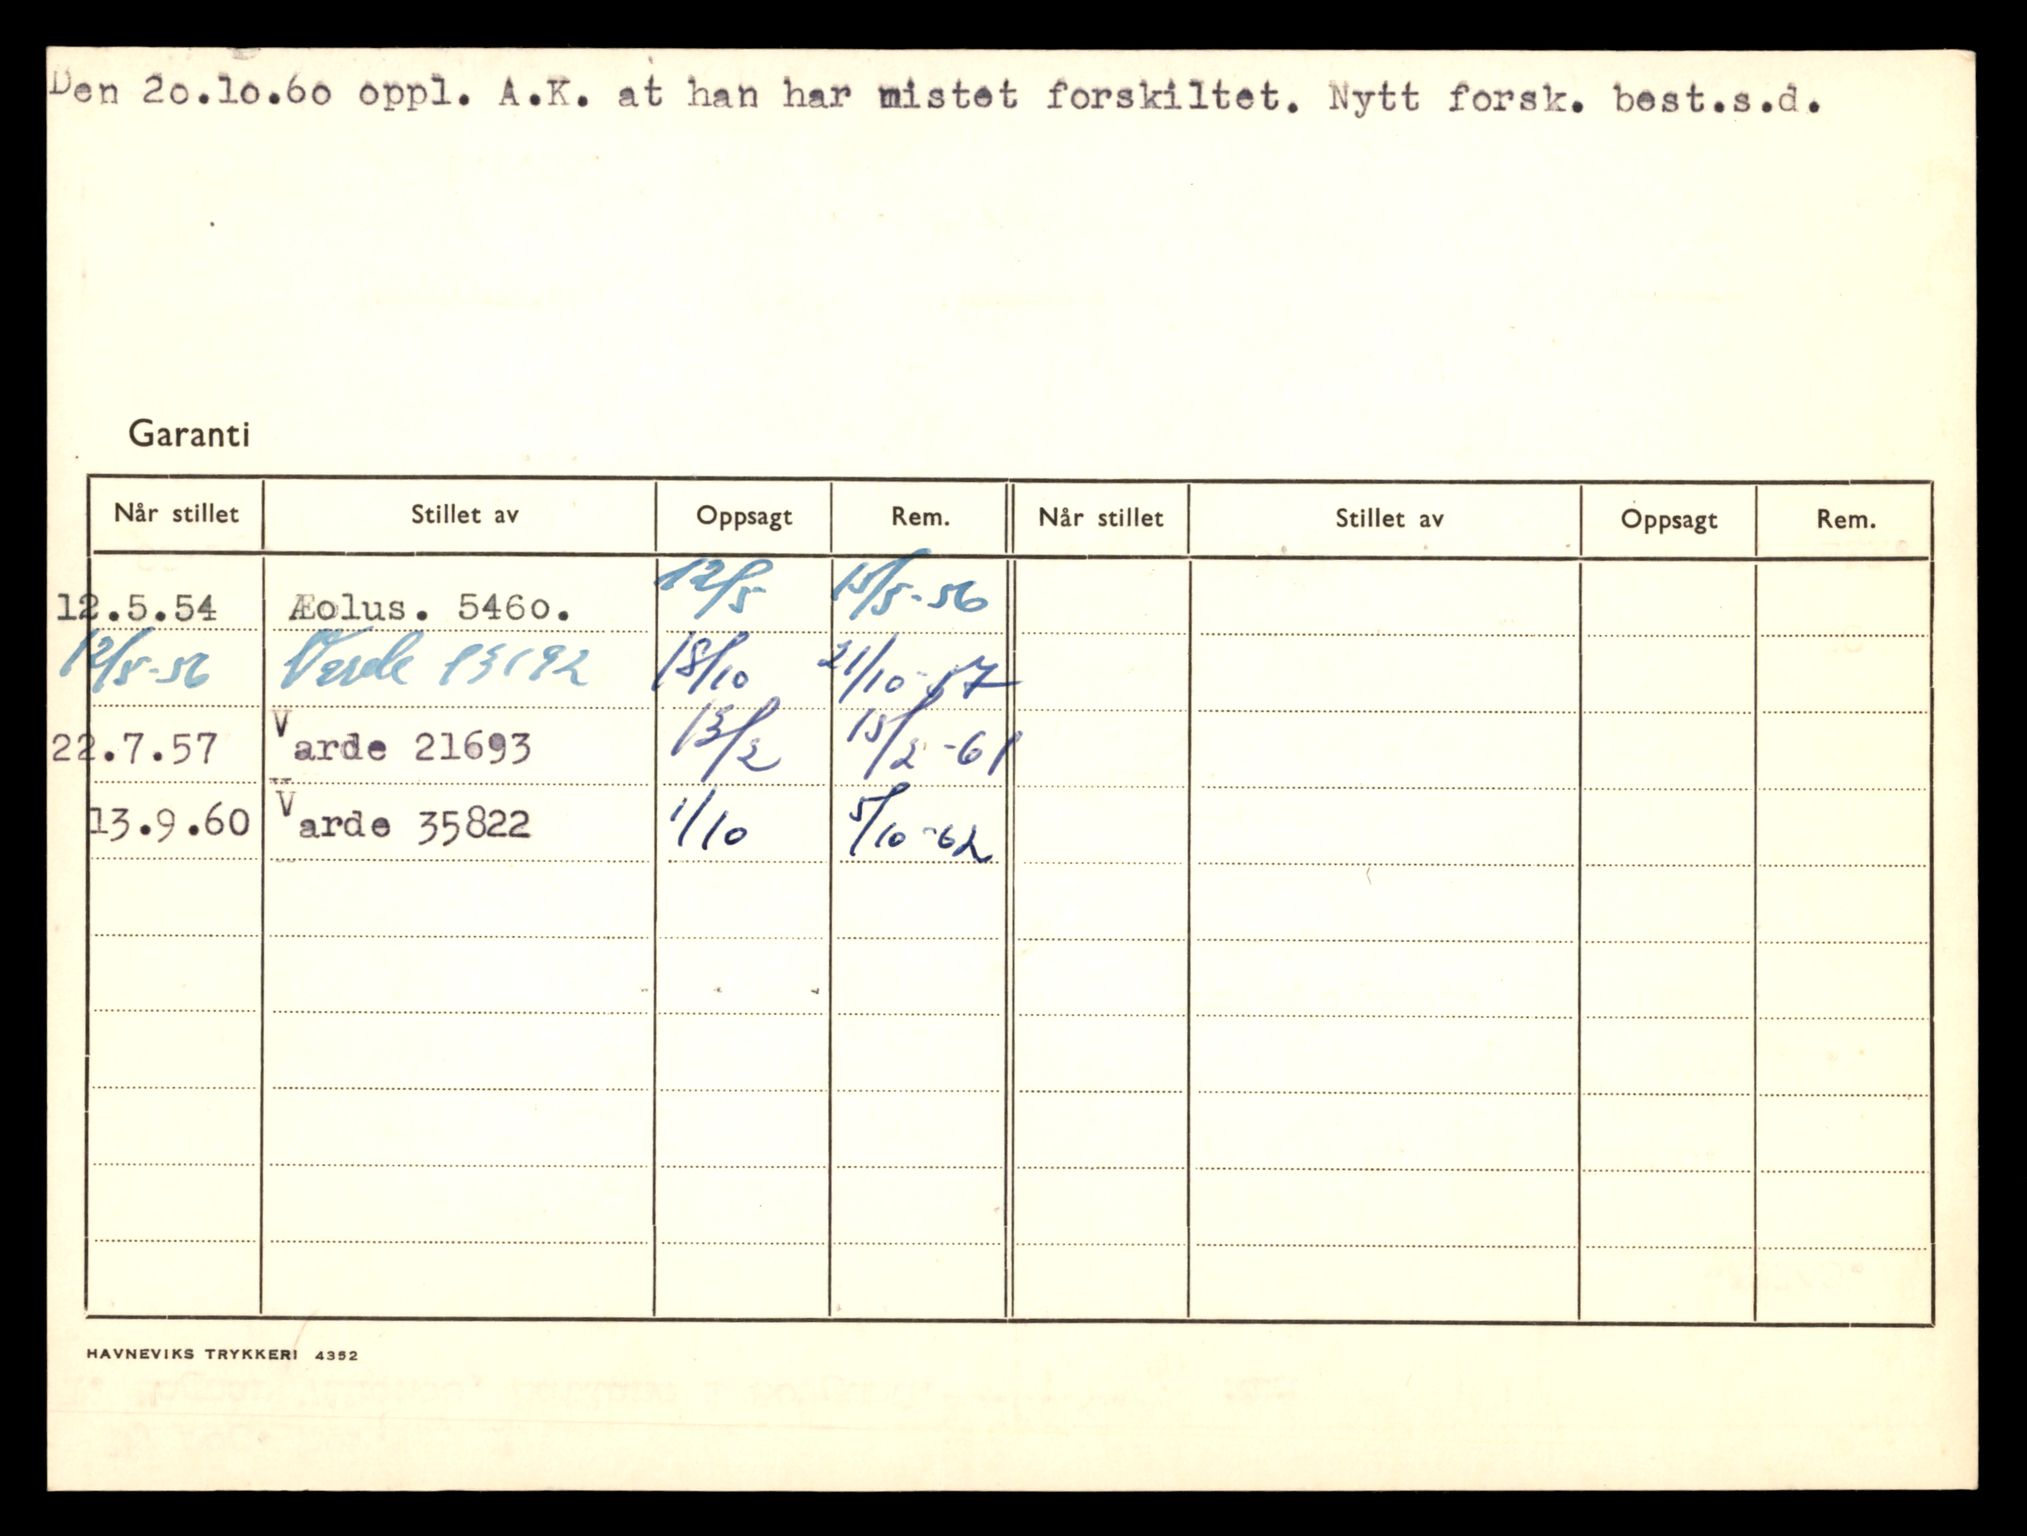 Den 20.10.60 oppl. A.K. at han har mistet forskiltet. Nytt forsk. best.s.d.
Garanti
Når stillet Stillet av Oppsagt Rem. Når stillet Stillet av Oppsagt Rem.
12.5.54 Æolus. 5460. 12/5 15/5-56
12/5-56 Varde 13192 18/10 21/10-57
22.7.57 Varde 21693 13/2 15/2-61
13.9.60 Varde 35822 1/10 5/10-62
HAVNEVIKS TRYKKERI 4352